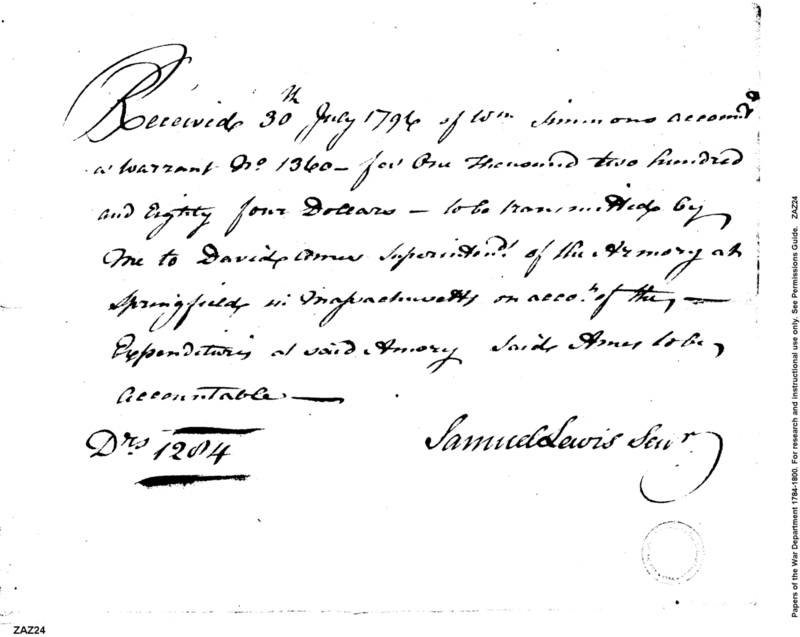 Received 30th July 1796 of Wm Simmons accountt
a warrant No. 1360 – for One Thousand two hundred
and Eighty four Dollars – to be transmitted by
Me to David Ames Superintend.t of the Armory at
Springfield in Massachusetts on acco.t of the –
Expenditures at said Amory Said Ames to be
accountable –
Drs 1284
Samuel Lewis Senr
ZAZ24
Papers of the War Department 1784-1800. For research and instructional use only. See Permissions Guide. ZAZ24